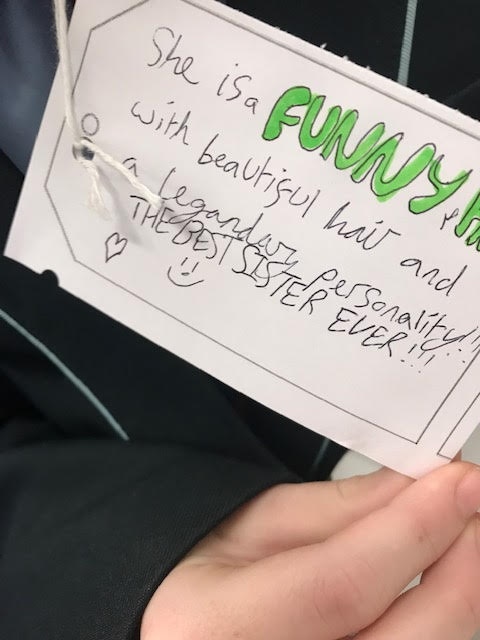 She is a FUNNY
with beautiful hair and
a legandary personality!!!
THE BEST SISTER EVER!!!